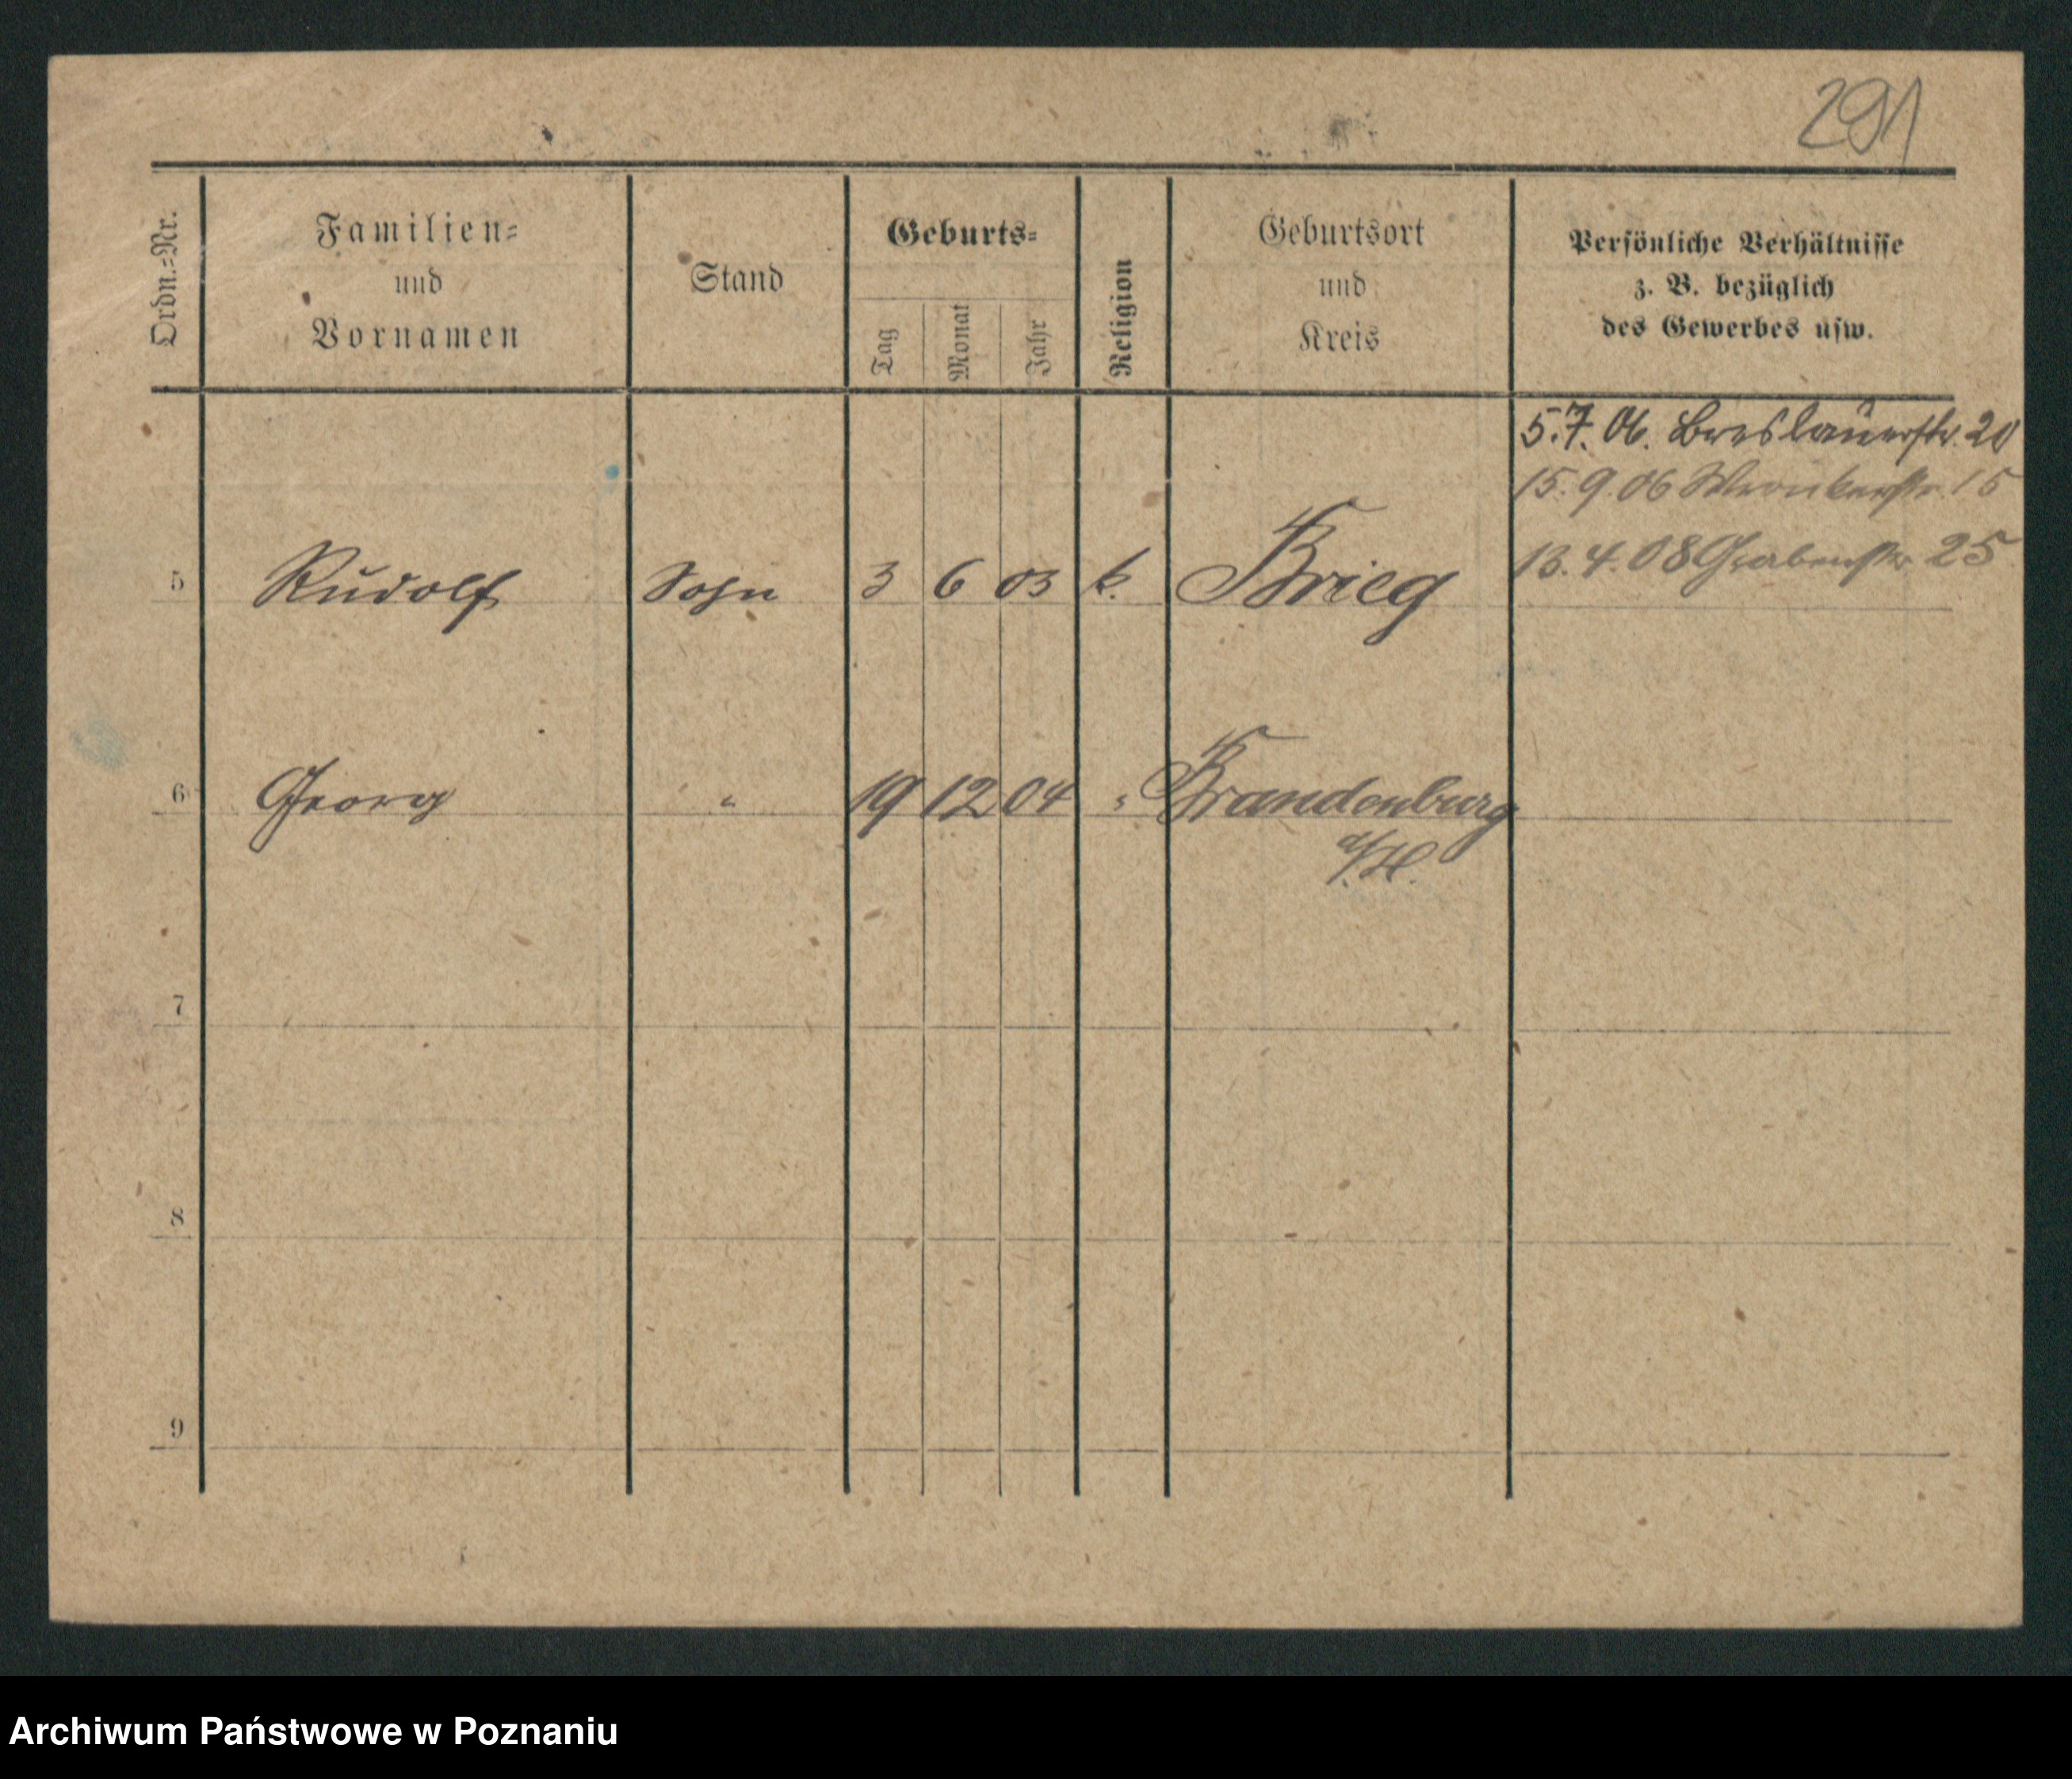 291
Ordn.-Nr.
Familien-
und
Vornamen
Stand
Geburts-
Tag
Monat
Jahr
Religion
Geburtsort
und
Kreis
Persönliche Verhältnisse
z. B. bezüglich
des Gewerbes usw.
5.7.06. Breslauerstr. 20
15.9.06 Wronkerstr. 15
13.4.08 Grabenstr 25
5 Rudolf Sohn 3 6 03 k. Brieg
6 Georg " 19 12 04 " Brandenburg
a/H.
7
8
9
Archiwum Państwowe w Poznaniu